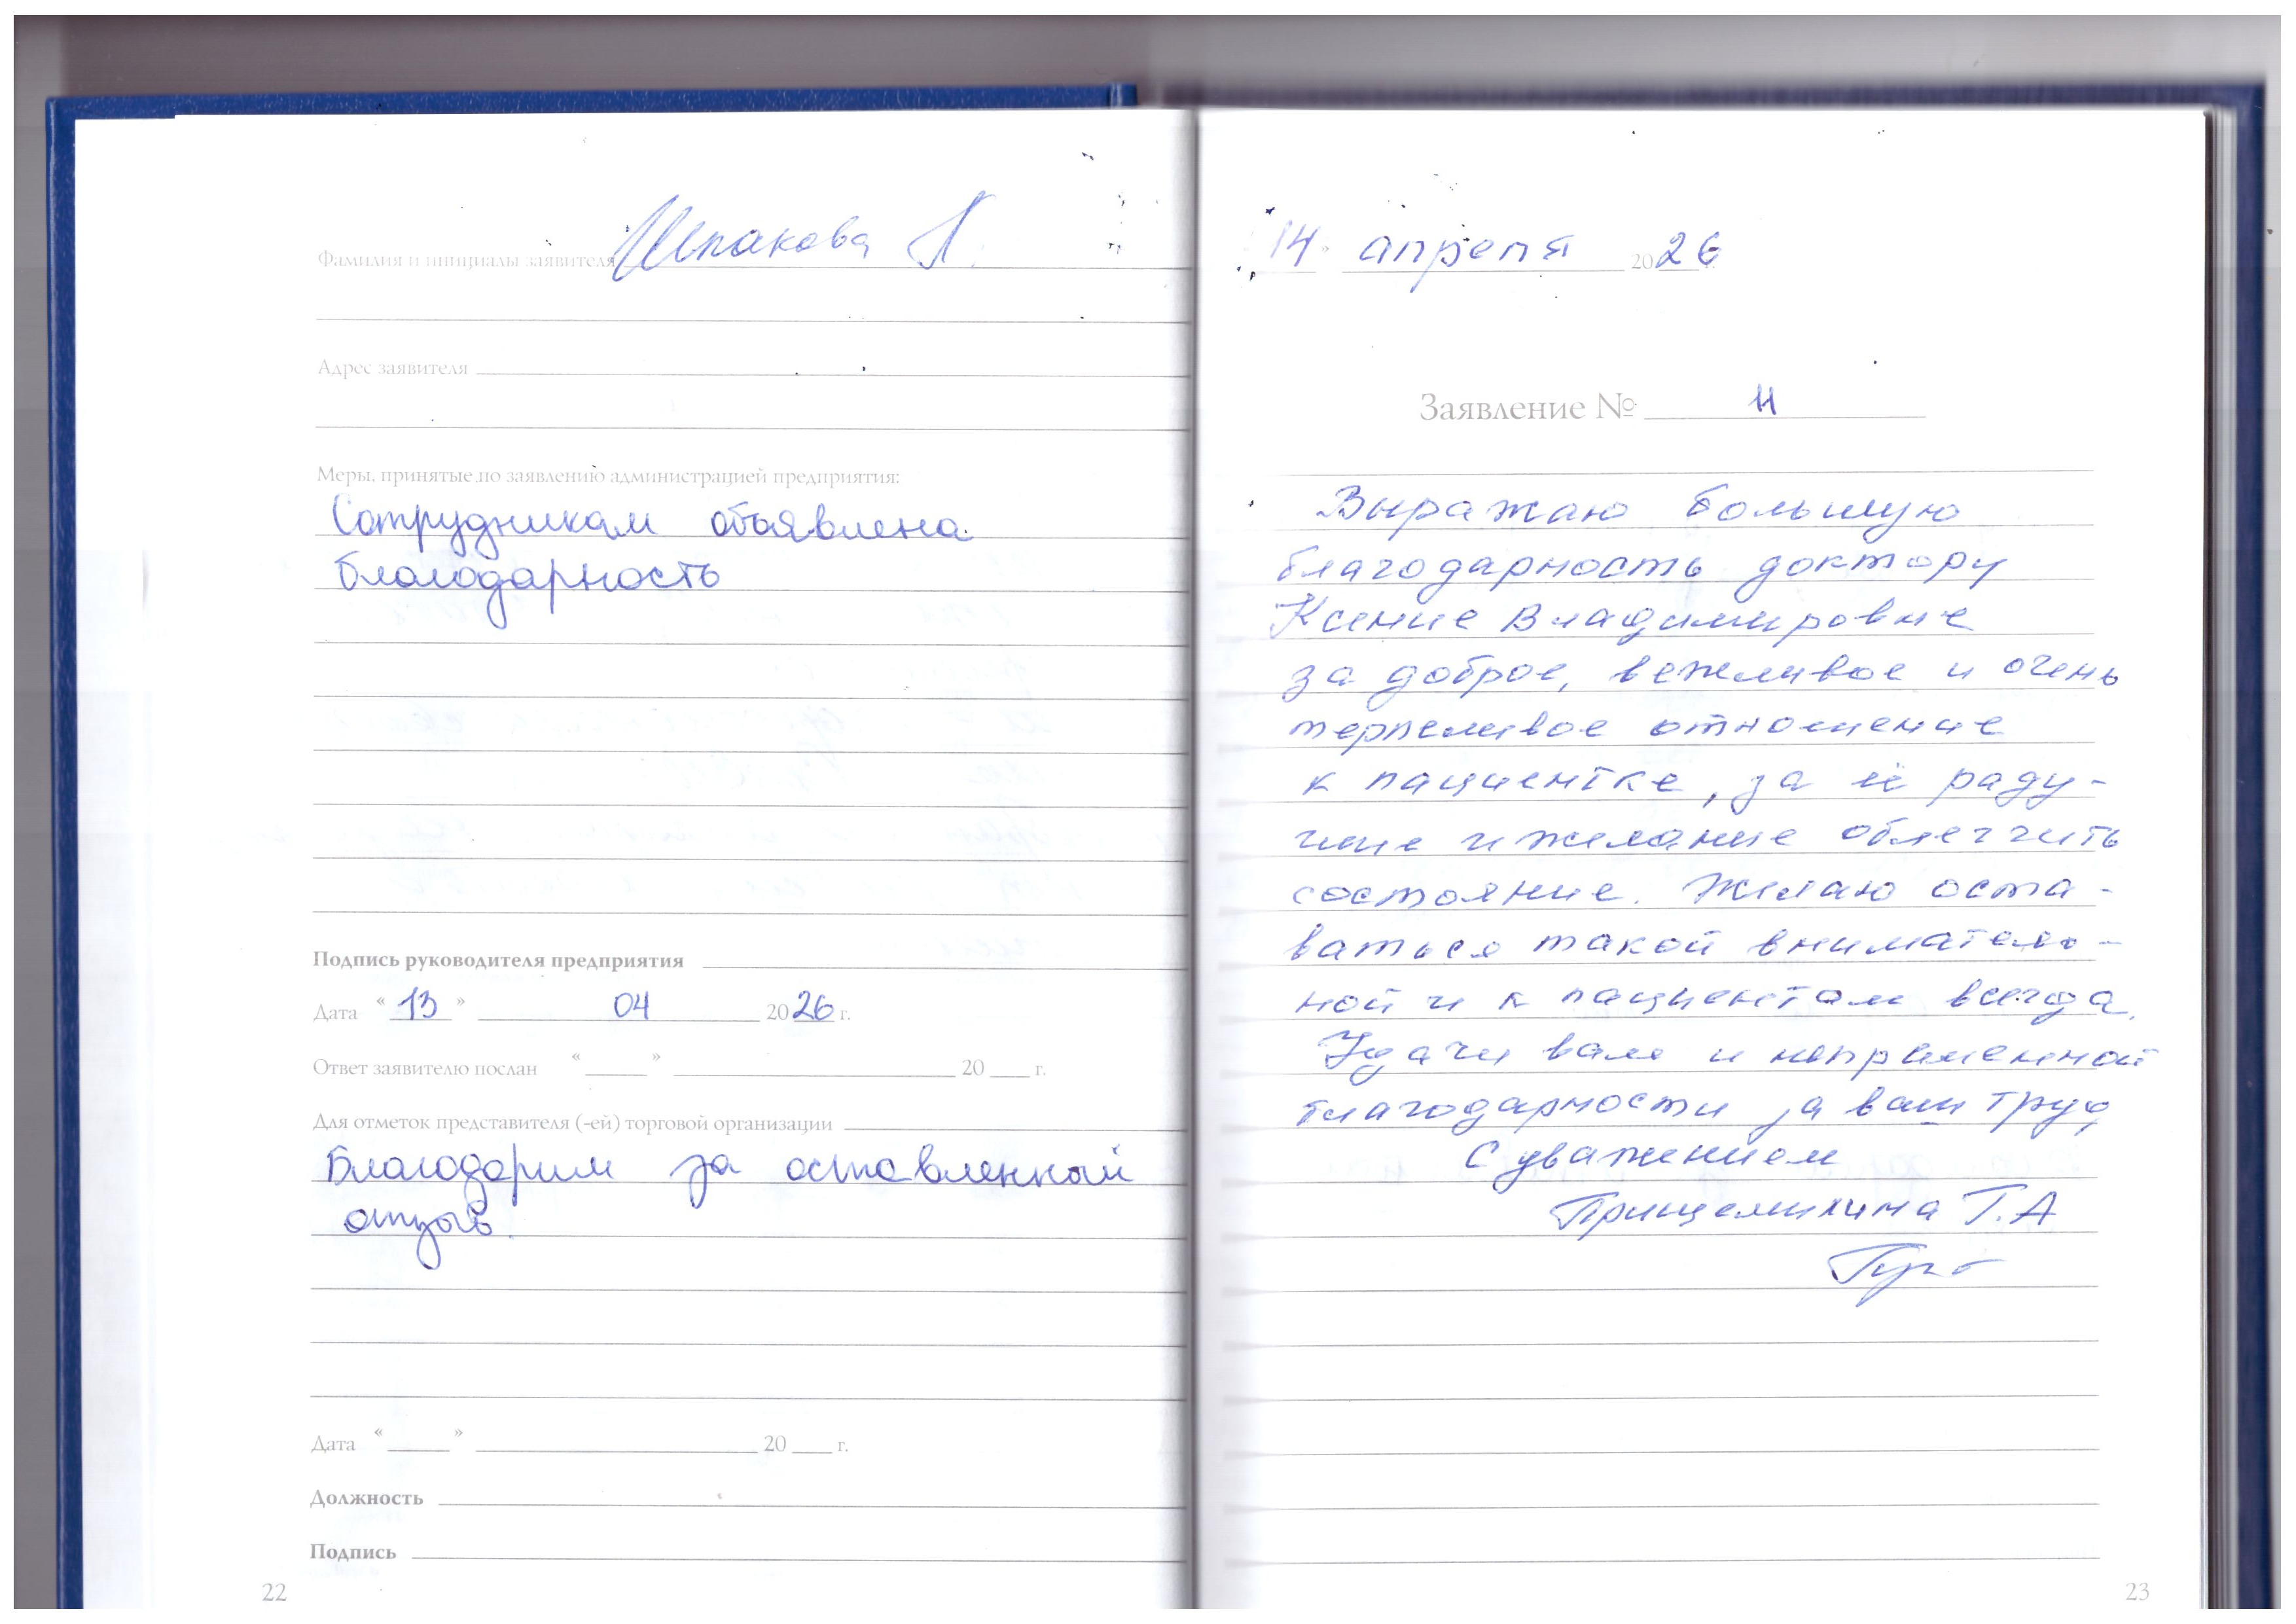 Фамилия и инициалы заявителя Шпакова Л.
Адрес заявителя
Меры, принятые по заявлению администрацией предприятия:
Сотрудникам объявлена
благодарность
Подпись руководителя предприятия
Дата « 13 » 04 2026 г.
Ответ заявителю послан « » 20 г.
Для отметок представителя (-ей) торговой организации
Благодарим за оставленный
отзыв.
Дата « » 20 г.
Должность
Подпись
22
14 » апреля 2026 г.
Заявление № 11
Выражаю большую
благодарность доктору
Ксение Владимировне
за доброе, вежливое и очень
терпеливое отношение
к пациентке, за её раду-
шие и желание облегчить
состояние. Желаю оста-
ваться такой вниматель-
ной и к пациентам всегда.
Удачи вам и непременной
благодарности за ваш труд,
С уважением
Т.А
23